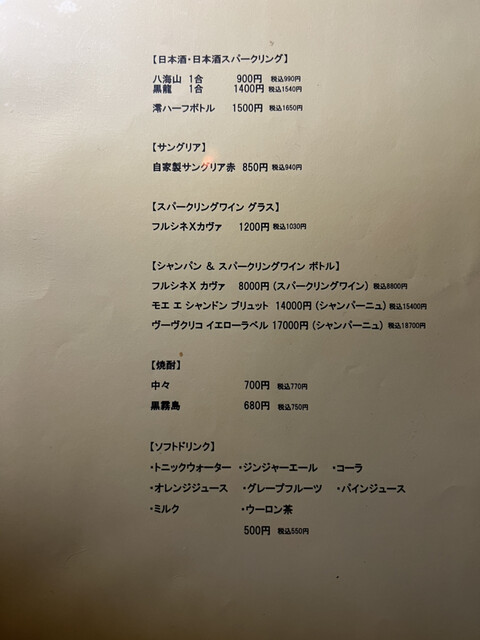 【日本酒・日本酒スパークリング】
八海山 1合 900円 税込990円
黒龍 1合 1400円 税込1540円
澪ハーフボトル 1500円 税込1650円
【サングリア】
自家製サングリア赤 850円 税込940円
【スパークリングワイン グラス】
フルシネXカヴァ 1200円 税込1030円
【シャンパン & スパークリングワイン ボトル】
フルシネX カヴァ 8000円 (スパークリングワイン) 税込8800円
モエ エ シャンドン ブリュット 14000円 (シャンパーニュ) 税込15400円
ヴーヴクリコ イエローラベル 17000円 (シャンパーニュ) 税込18700円
【焼酎】
中々 700円 税込770円
黒霧島 680円 税込750円
【ソフトドリンク】
・トニックウォーター ・ジンジャーエール ・コーラ
・オレンジジュース ・グレープフルーツ ・パインジュース
・ミルク ・ウーロン茶
500円 税込550円